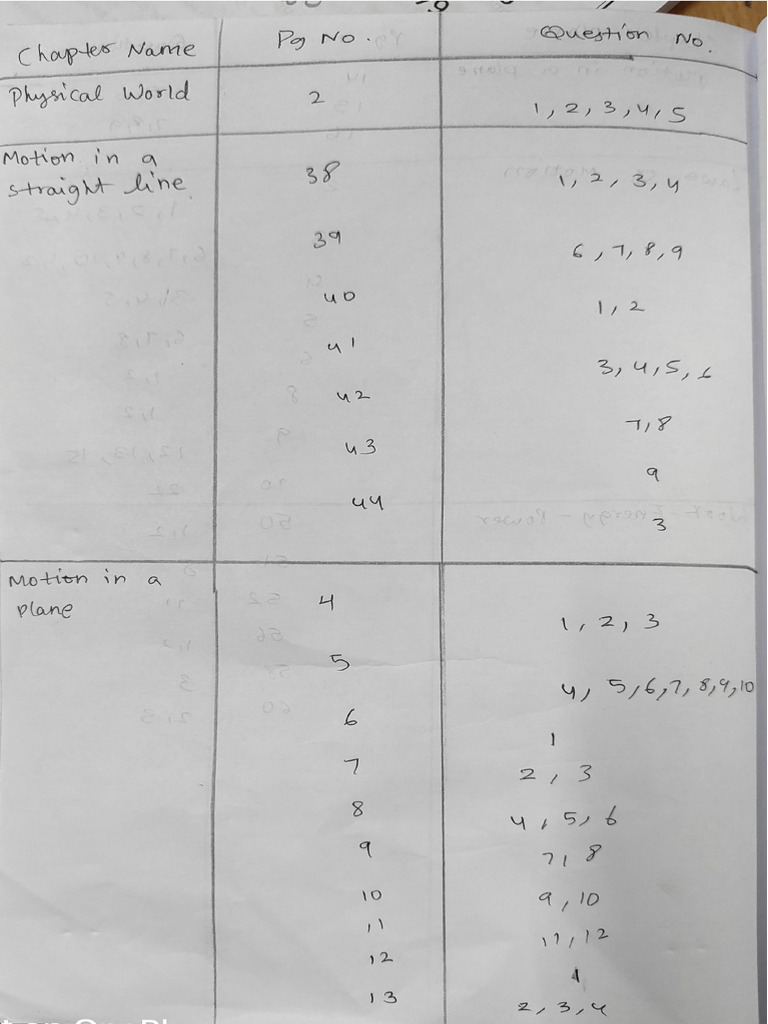 Chapter Name Pg No. Question No.
Physical World 2 1, 2, 3, 4, 5
Motion in a
straight line 38 1, 2, 3, 4
39 6, 7, 8, 9
40 1, 2
41 3, 4, 5, 6
42 7, 8
43 9
44 3
Motion in a
plane 4 1, 2, 3
5 4, 5, 6, 7, 8, 9, 10
6 1
7 2, 3
8 4, 5, 6
9 7, 8
10 9, 10
11 11, 12
12 1
13 2, 3, 4